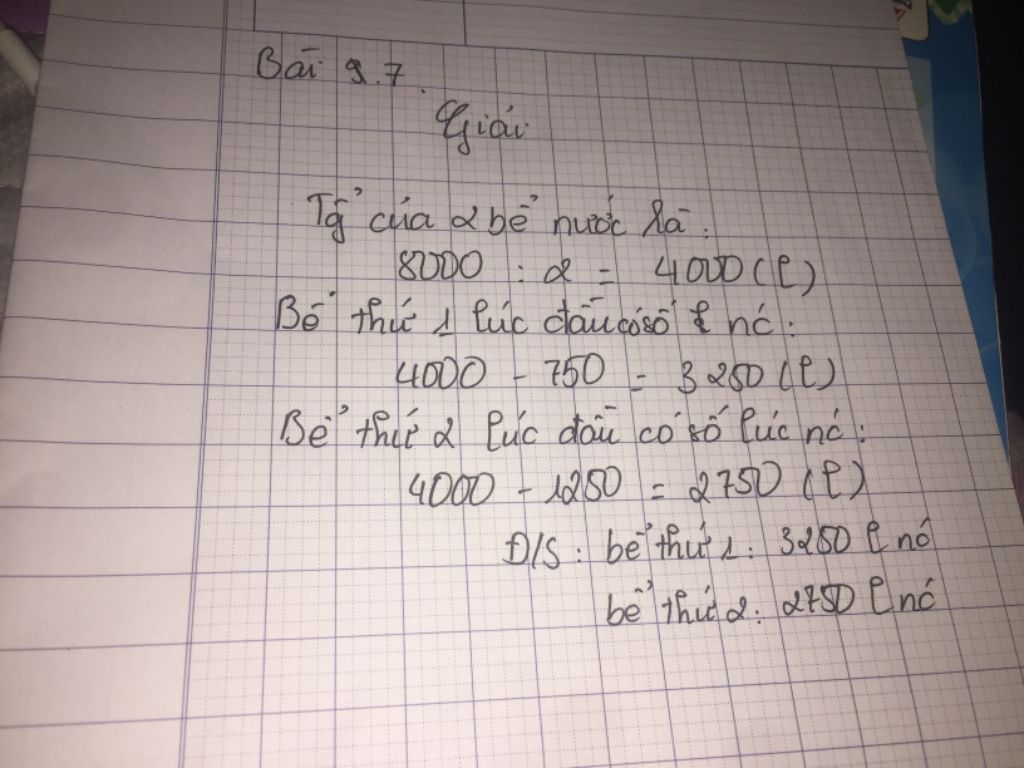 Bài 9.7.
Giải
Tổ của 2 bể nước là:
8000 : 2 = 4000 (l)
Bể thứ 1 lúc đầu có số l nć:
4000 - 750 = 3250 (l)
Bể thứ 2 lúc đầu có số lúc nć:
4000 - 1250 = 2750 (l)
Đ/S: bể thứ 1: 3250 l nć
bể thứ 2: 2750 l nć